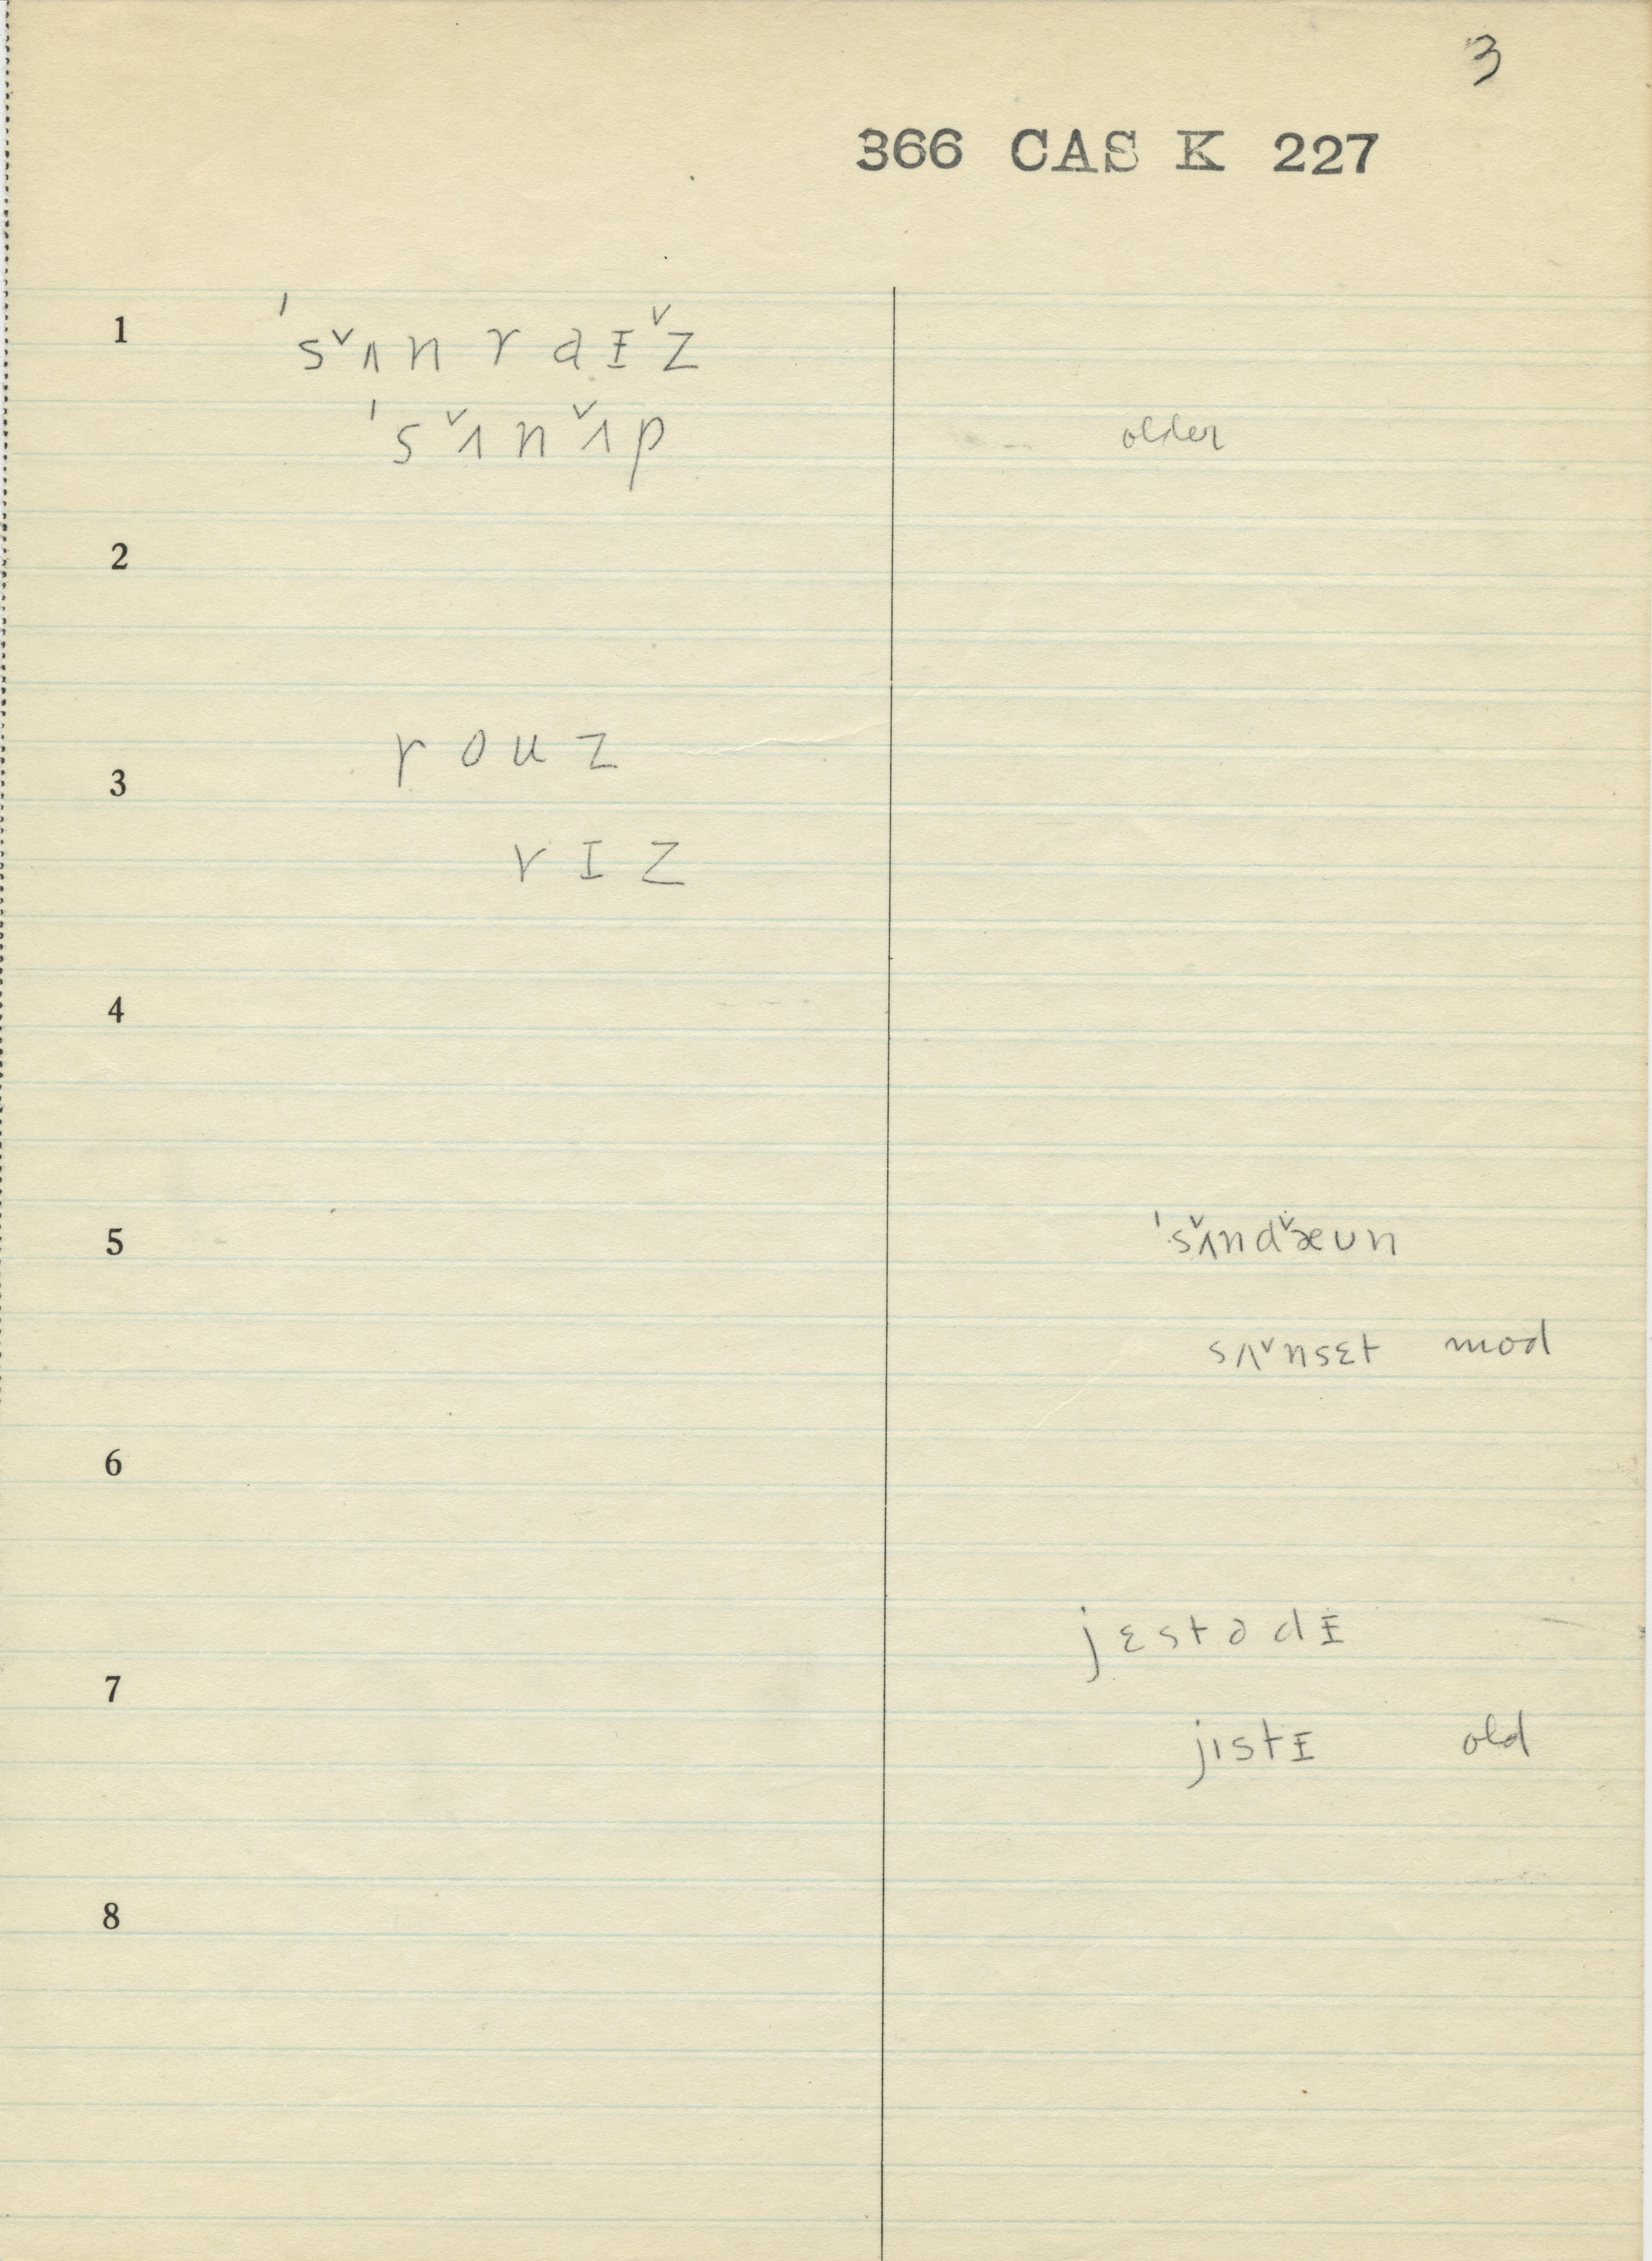 3
366 CAS K 227
1 ˈsˇʌn r aɪˇz
ˈsˇʌnˇʌp older
2
r o u z
3
r ɪ z
4
5 ˈsˇʌndˇæun
sʌˇnsɛt mod
6
jɛstədɪ
7
jistɪ old
8